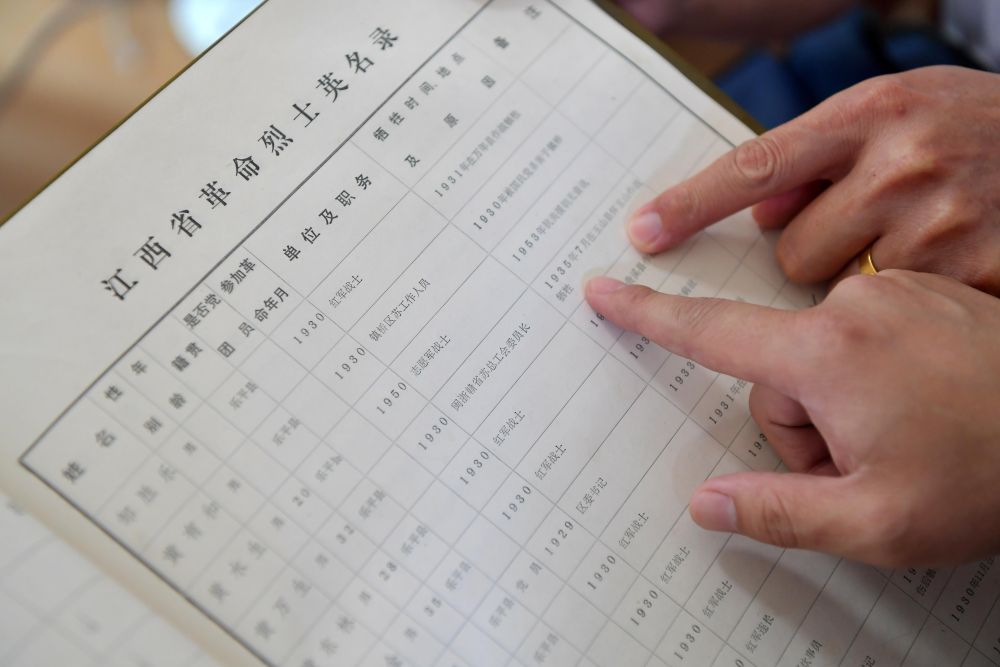 江西省革命烈士英名录
姓名 性别 年龄 籍贯 是否党团员 参加革命年月 单位及职务 牺牲时间、地点及原因 备注
乐 男 乐平县 1930 红军战士 1931年在万年县作战牺牲
黄有和 男 乐平县 1930 镇桥区苏工作人员 1930年被国民党杀害于镇桥
黄水生 男 20 乐平县 1950 志愿军战士 1953年抗美援朝无音讯
黄万生 男 32 乐平县 1930 闽浙赣省苏总工会委员长 1935年7月在玉山县怀玉山作战牺牲
黄 林 男 28 乐平县 1930 红军战士
男 35 乐平县 1930 红军战士
乐平县 党员 1929 区委书记 1933
乐平县 1930 红军战士 1931年在
1930 红军战士
1930 红军战士
红军连长
炊事员 1930年11月
书记